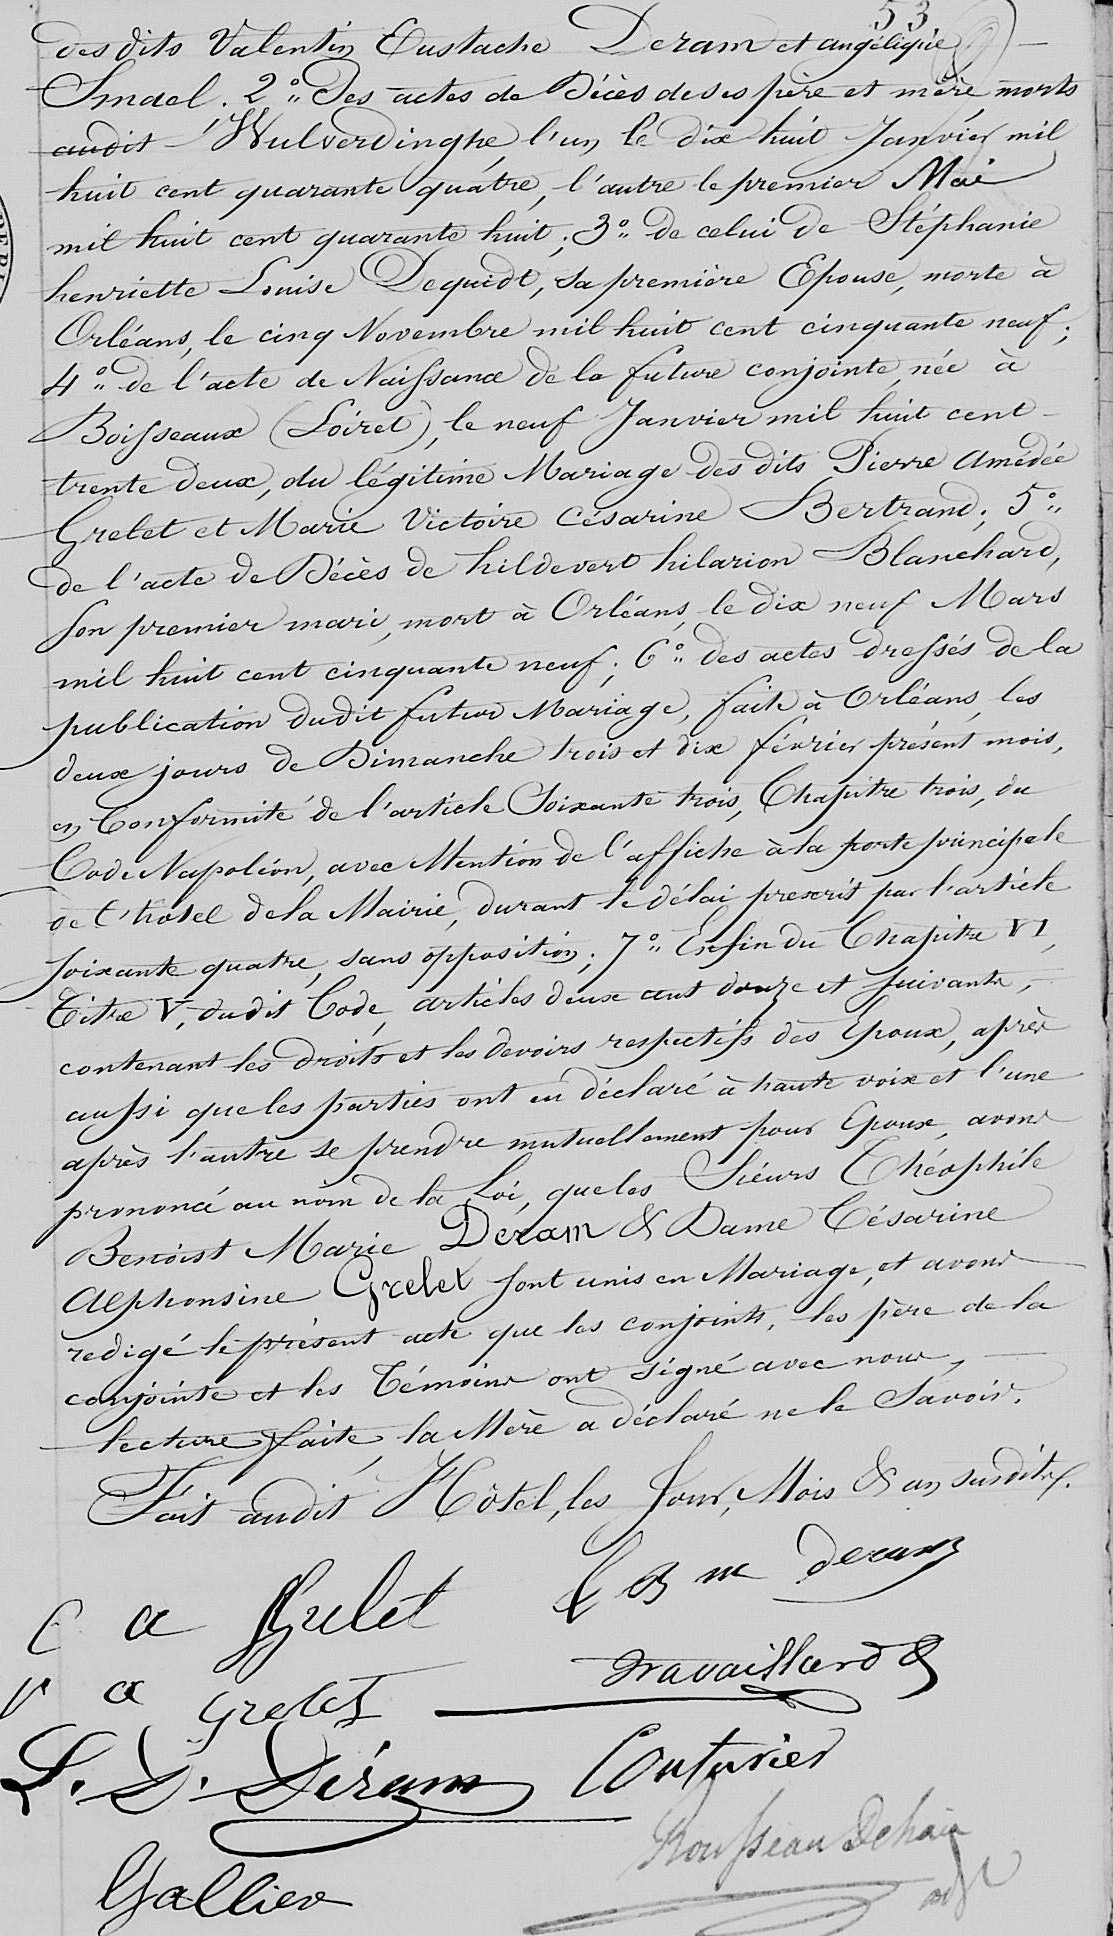 53
des dits Valentin Eustache Deram et angélique
Smael. 2°: Des actes de Décès de ses père et mère morts
audit Wulverdinghe, l'un le dix huit Janvier mil
huit cent quarante quatre, l'autre le premier Mai
mil huit cent quarante huit; 3°: de celui de Stéphanie
henriette Louise Dequidt, sa première Epouse, morte à
Orléans, le cinq Novembre mil huit cent cinquante neuf;
4°: de l'acte de Naissance de la future conjointe, née à
Boisseaux (Loiret), le neuf Janvier mil huit cent
trente deux, du légitime Mariage des dits Pierre Amédée
Grelet et Marie Victoire Césarine Bertrand; 5°:
de l'acte de Décès de hildevert hilarion Blanchard,
son premier mari, mort à Orléans, le dix neuf Mars
mil huit cent cinquante neuf; 6°: des actes dressés de la
publication dudit futur Mariage, faite à Orléans, les
deux jours de Dimanche trois et dix février présent mois,
en Conformité de l'article Soixante trois, Chapitre trois, du
Code Napoléon, avec Mention de l'affiche à la porte principale
de l'hôtel de la Mairie, durant le délai prescrit par l'article
soixante quatre, sans opposition; 7°: Enfin du Chapitre VI,
Titre V, dudit Code, articles deux cent douze et suivants,
contenant les droits et les devoirs respectifs des Epoux, après
aussi que les parties ont eu déclaré à haute voix et l'une
après l'autre se prendre mutuellement pour Epoux, avons
prononcé au nom de la Loi, que les Sieurs Théophile
Benoist Marie Deram & Dame Césarine
Alphonsine Grelet sont unis en Mariage, et avons
redigé le présent acte que les conjoints, les père de la
conjointe et les Témoins ont signé avec nous,
lecture faite, la Mère a déclaré ne le Savoir.
Fait audit Hôtel, les Jour, Mois & an susdits.
C a Grelet
T B M deram
P a Grelet
Travaillard
L. D. Déram
Couturier
Gallier
Rousseau Dehais